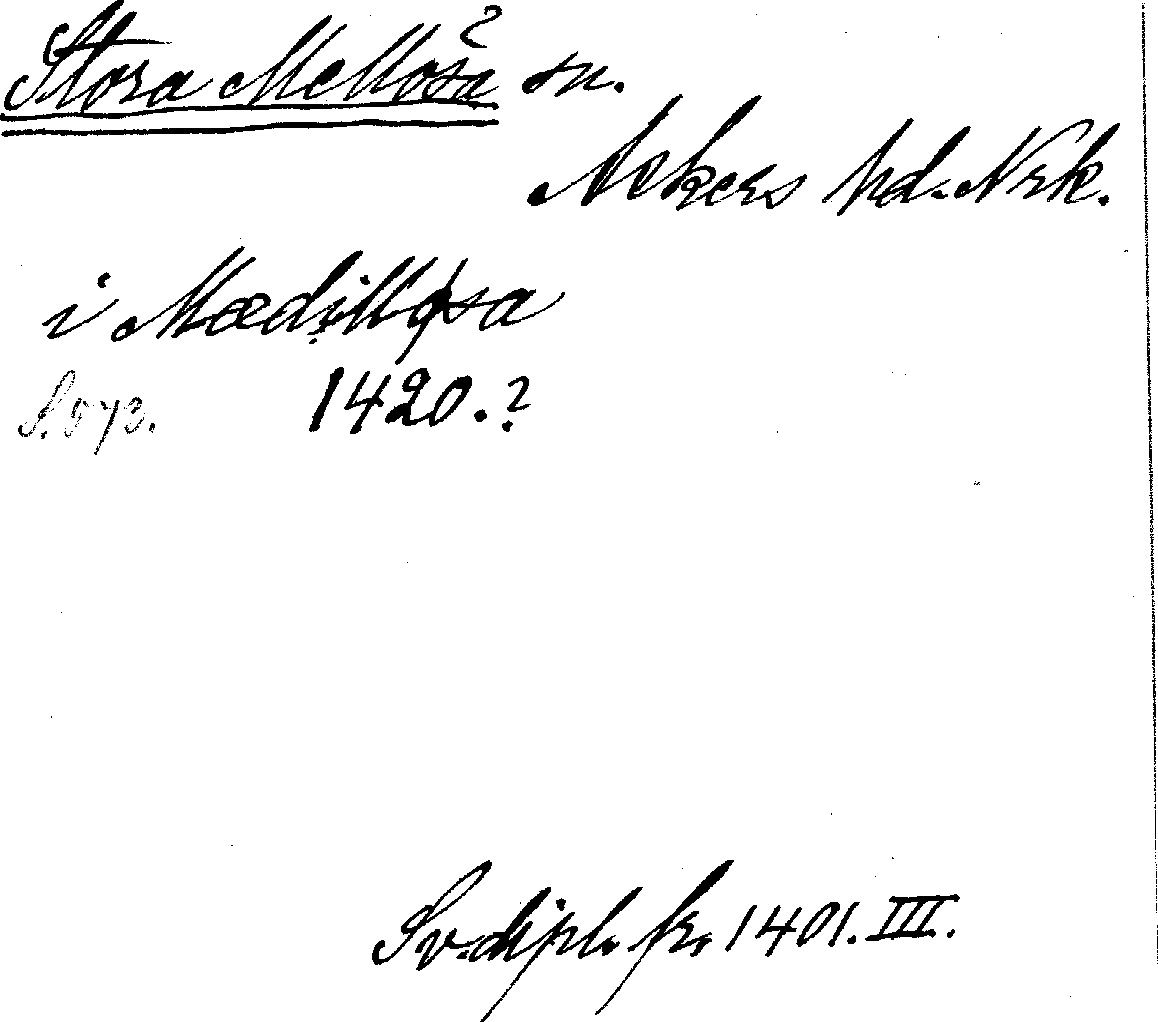 Stora Mellösa sn.
Askers hd. Nrk.
i Mædilløsa
S. 573. 1420.?
Sv. dipl. fr. 1401. III.